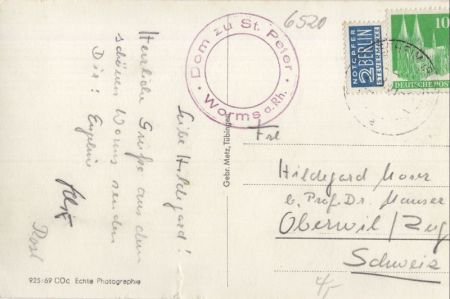 6520
Dom zu St. Peter
Worms a. Rh.
NOTOPFER
2 BERLIN
STEUERMARKE
10
DEUTSCHE POST
Liebe Hildegard!
Herzliche Grüße aus dem
schönen Worms senden
Dir! Eugenie
Rosl
Gebr. Metz, Tübingen
Frl
Hildegard Moser
b. Prof. Dr. Mauser
Oberwil/Zug
Schweiz
925:69 COc Echte Photographie